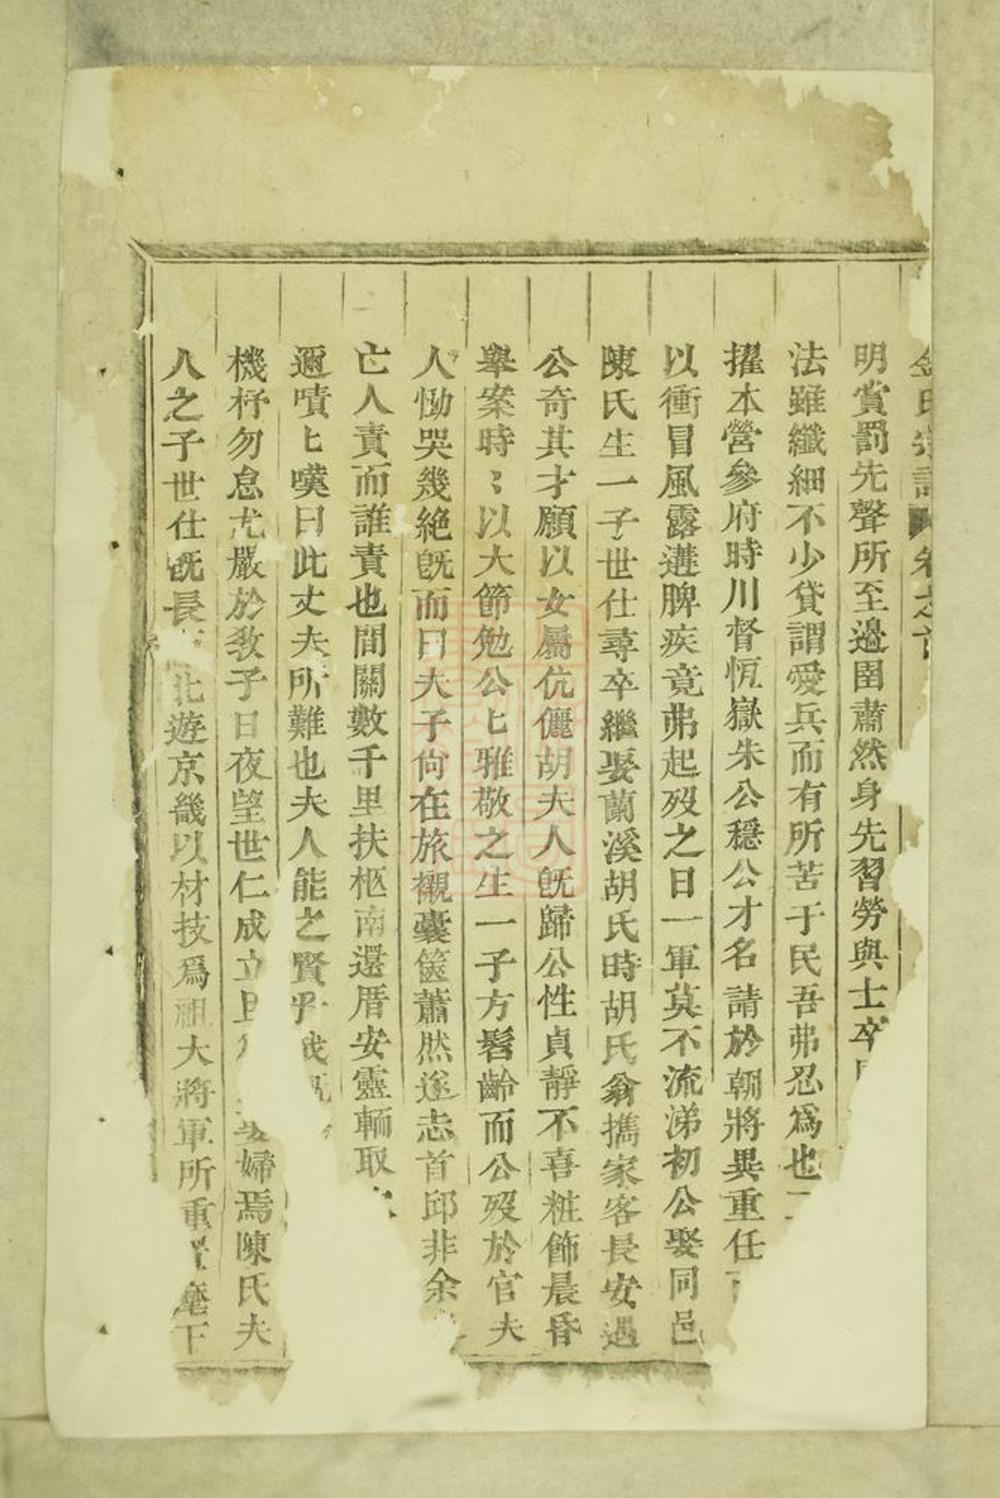 氏宗譜 卷之首
明賞罰先聲所至邊圉肅然身先習勞與士卒
法雖纖細不少貸謂愛兵而有所苦于民吾弗忍爲也
擢本營參府時川督恆嶽朱公穩公才名請於朝將異重任
以衝冒風露遘脾疾竟弗起歿之日一軍莫不流涕初公娶同邑
陳氏生一子世仕尋卒繼娶蘭溪胡氏時胡氏翁攜家客長安遇
公奇其才願以女屬伉儷胡夫人旣歸公性貞靜不喜粧飾晨昏
舉案時〻以大節勉公匕雅敬之生一子方髫齡而公歿於官夫
人慟哭幾絶旣而曰夫子尙在旅櫬囊篋蕭然遂志首邱非余
亡人責而誰責也間關數千里扶柩南還厝安靈輀取
邇嘖匕嘆曰此丈夫所難也夫人能之賢乎
機杼勿怠尤嚴於敎子日夜望世仁成立 婦焉陳氏夫
人之子世仕旣長 北遊京畿以材技爲祖大將軍所重 麾下